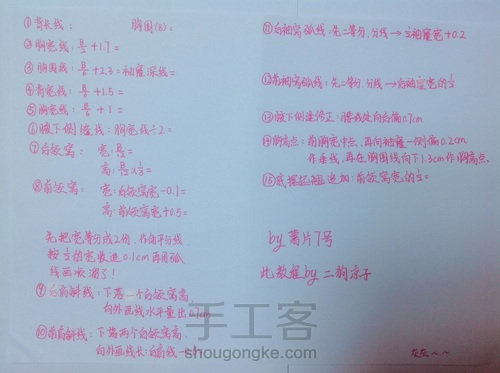 ①背长线: 胸围(B):
②胸宽线: B/8 + 1.7 =
③胸围线: B/8 + 2.3 = 袖窿深线 =
④背宽线: B/8 + 1.5 =
⑤胸宽线: B/8 + 1 =
⑥腋下侧缝线: 胸宽线÷2 =
⑦后领窝: 宽:
高:
⑧前领窝: 宽:后领窝宽-0.1=
高:后领窝宽+0.5=
先把宽等分成2份,作角平分线,
按1/2的宽收进0.1cm再用弧
线画吸润了!
⑨后肩斜线: 下落一个后领窝高,
向外画线水平量出0.1cm
⑩前肩斜线: 下落两个后领窝高,
向外画线长:后肩线-
⑪后袖窿弧线:先二等分,分线→1/2袖窿宽+0.2
前袖窿弧线:先二等分,分线→后袖窿宽的1/2
腋下侧缝修正:腰线处向后偏0.7cm
胸高点:前胸宽中点,再向袖窿一侧偏0.2cm
作垂线,再在胸围线向下1.3cm作胸高点.
⑮底摆起翘追加:前领窝宽的1/2=
by 薯片7号
此教程by 二狗凉子
手工客
shougongke.com